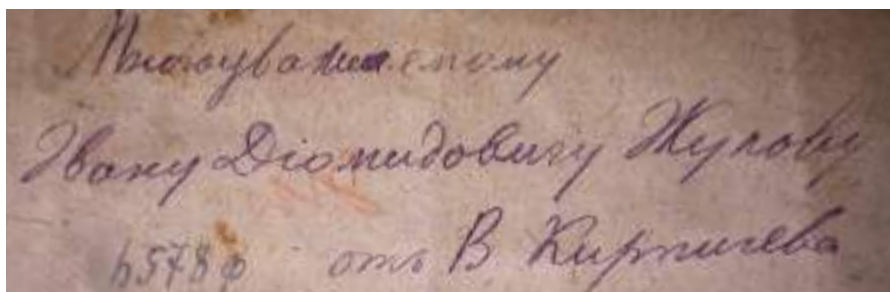 Многоуважаемому
Ивану Діомидовичу Жукову
отъ В Кирпичева